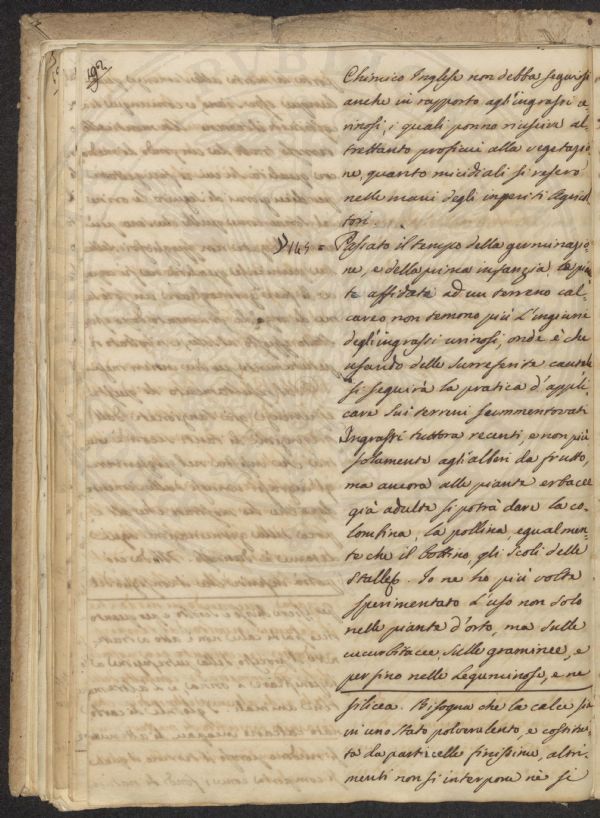 192
Chimico Inglese non debba seguirsi
anche in rapporto agl'ingrassi u-
rinosi, i quali ponno riuscire al-
trettanto proficui alla vegetazio
ne, quanto micidiali si resero
nelle mani degli inperiti Agricol
tori.
§ 145 = Passato il tempo della germinazio
ne, e della prima infanzia, le pian
te affidate ad un terreno cal-
careo non temono più l'ingiurie
degl'ingrassi urinosi, onde è che
usando delle surreferite cautele
si seguirà la pratica d'appli
care sui terreni summentovati
Ingrassi tuttora recenti, e non più
solamente agli alberi da frutto,
ma ancora alle piante erbacee
già adulte si potrà dare la co-
lombina, la pollina, egualmen-
te che il bottino, gli scoli delle
stalle. Io ne ho più volte
sperimentato l'uso non solo
nelle piante d'orto, ma sulle
cucurbitacee, sulle graminee, e
per fino nelle Leguminose, e ne
silicea. Bisogna che la calce sia
in uno stato polverulento, e costitui
ta da particelle finissime, altri-
menti non si interpone nè si